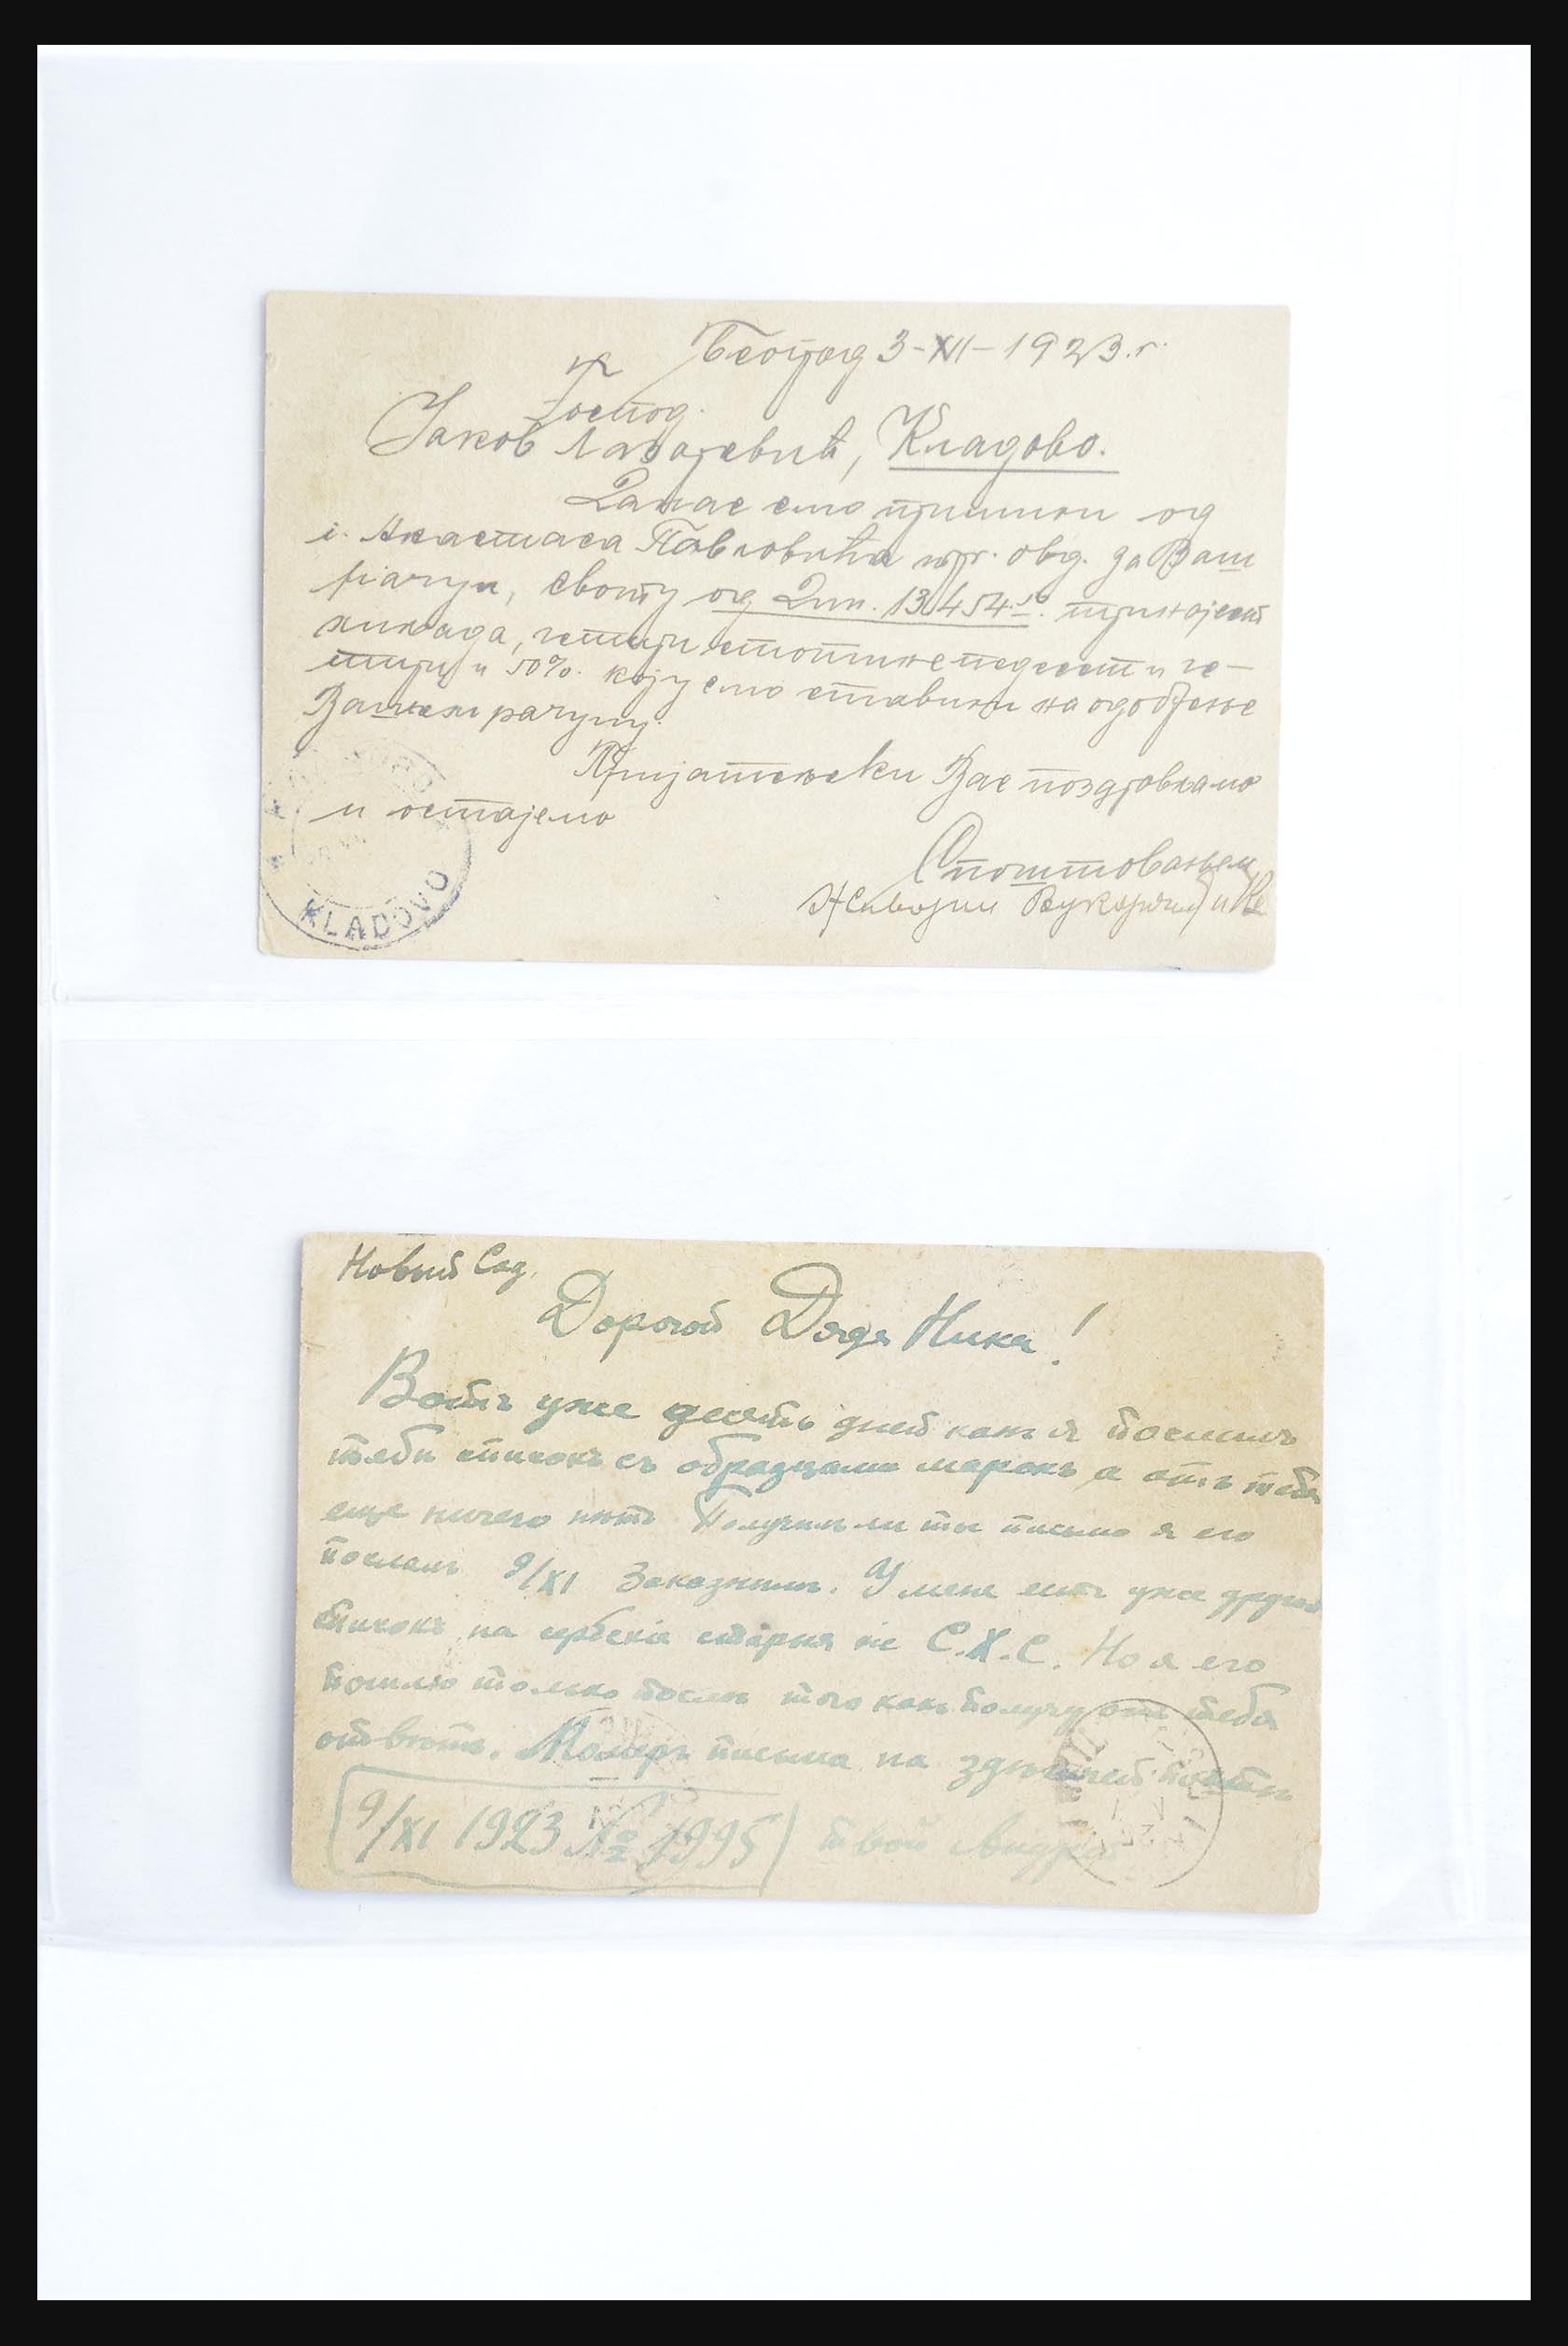 Београд 3-XII-1923.г.
Господ.
Јаков Лазаревић, Кладово.
Данас смо примили од
г. Анастаса Павловића трг. овд. за Ваш
рачун, своту од Дин. 13454.50. тринајест
хиљада, четири стотине педесет и че-
тири и 50%. коју смо ставили на одобрење
Вашем рачуну.
Пријатељски Вас поздрављамо
и остајемо
С поштовањем
Живојин и Ко
KLADOVO
Новый Сад.
Дорогой Дядя Ника!
Вотъ уже десять дней какъ я послалъ
тебѣ списокъ съ образцами марокъ а отъ тебя
еще ничего нѣтъ Получилъ ли ты письмо я его
послалъ 9/XI Заказнымъ. У меня есть уже другой
списокъ на сербскія старыя и С.Х.С. Но я его
пошлю только послѣ того какъ получу отъ тебя
отвѣтъ. Номеръ письма на здѣшней почтѣ
9/XI 1923 № 1995 твой Андрей